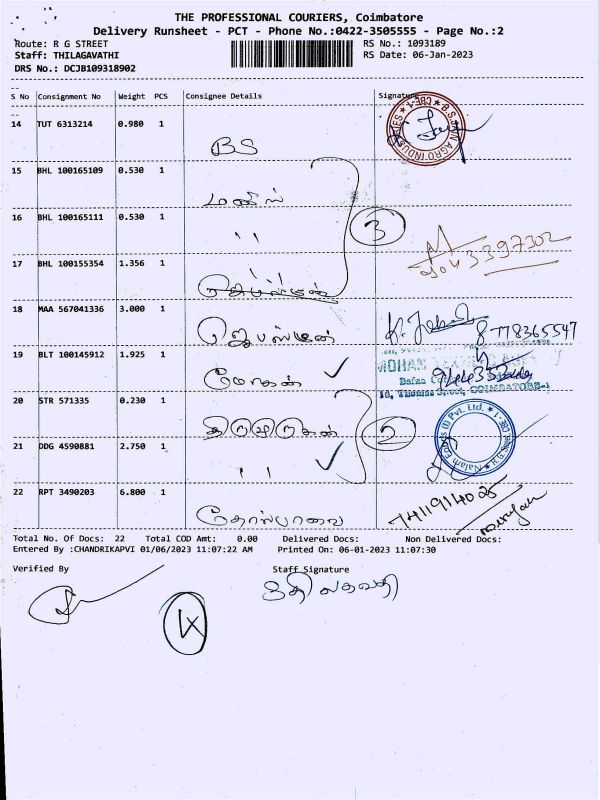 THE PROFESSIONAL COURIERS, Coimbatore
Delivery Runsheet - PCT - Phone No.:0422-3505555 - Page No.:2
Route: R G STREET
RS No.: 1093189
Staff: THILAGAVATHI
RS Date: 06-Jan-2023
DRS No.: DCJB109318902
S No Consignment No Weight PCS Consignee Details Signature
14 TUT 6313214 0.980 1 BS
15 BHL 100165109 0.530 1
16 BHL 100165111 0.530 1 ,,
3
17 BHL 100155354 1.356 1
18 MAA 567041336 3.000 1
8778365547
19 BLT 100145912 1.925 1 மோகன்
MOHAN
20 STR 571335 0.230 1
2
21 DDG 4590881 2.750 1 ,,
22 RPT 3490203 6.800 1
7411914025
Total No. Of Docs: 22 Total COD Amt: 0.00 Delivered Docs: Non Delivered Docs:
Entered By :CHANDRIKAPVI 01/06/2023 11:07:22 AM Printed On: 06-01-2023 11:07:30
Verified By Staff Signature
திலகவதி